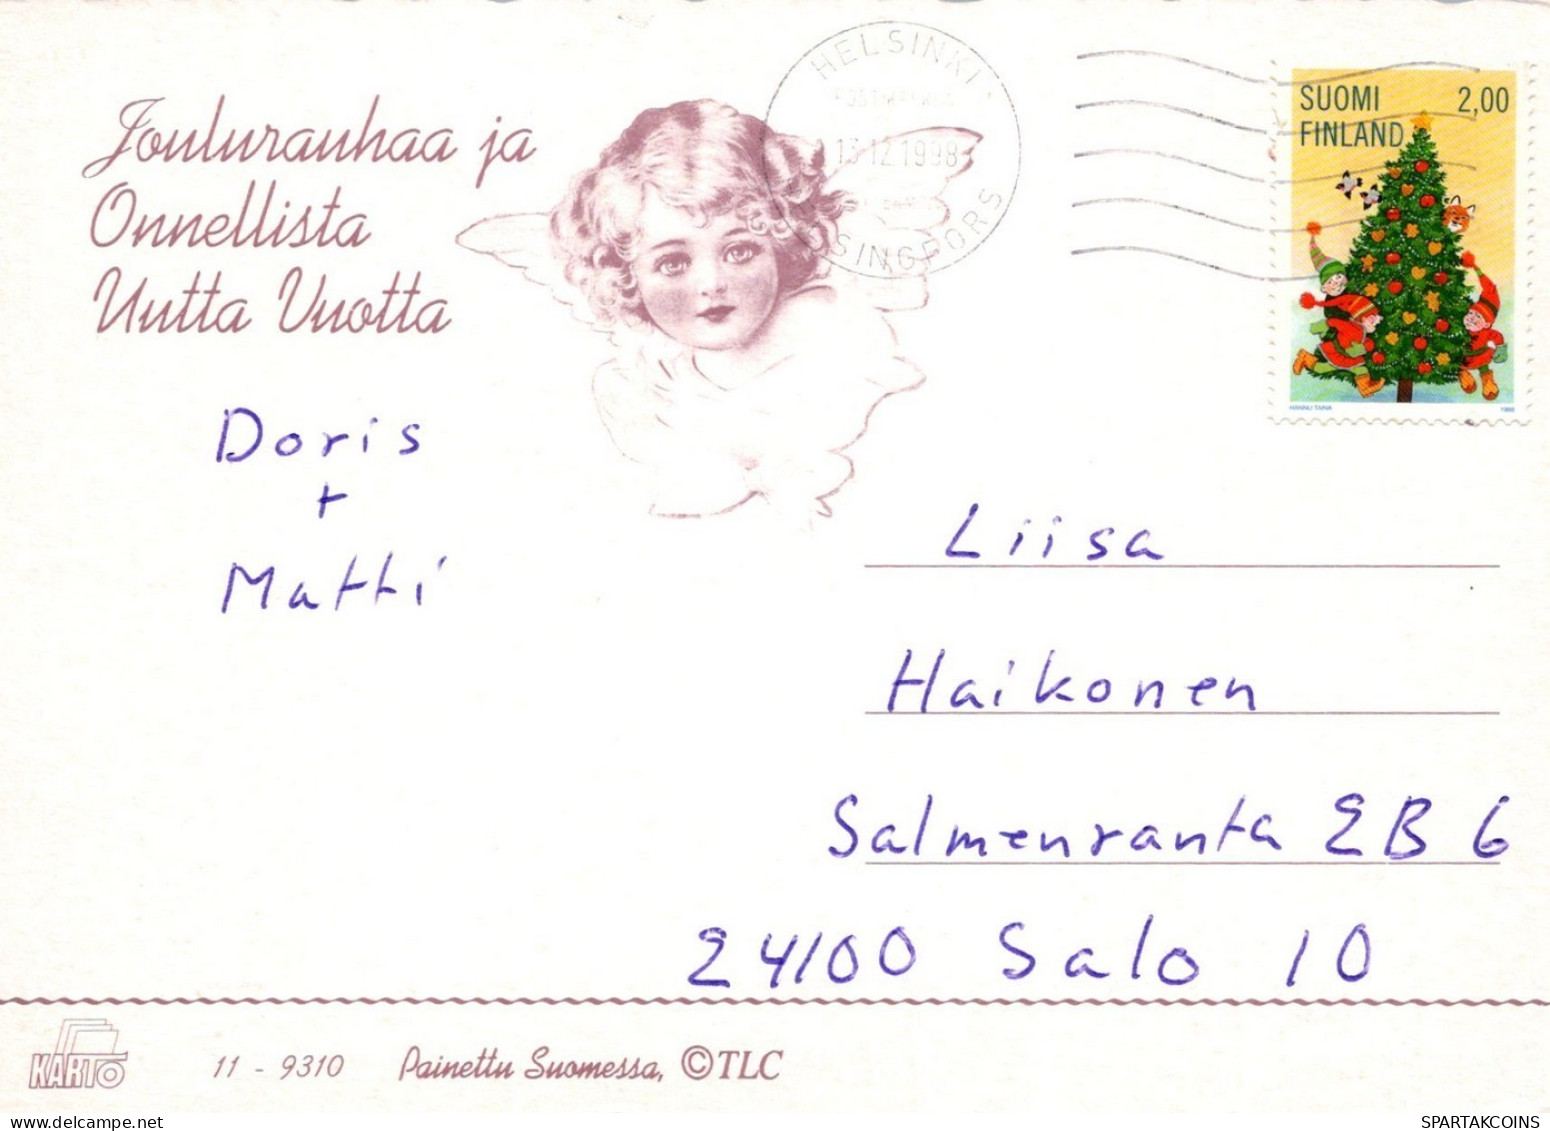 Joulurauhaa ja
Onnellista
Uutta Vuotta
HELSINKI
13.12.1998
SINGFORS
SUOMI 2,00
FINLAND
HANNU TAINA 1998
Doris
+
Matti
Liisa
Haikonen
Salmenranta 2B 6
24100 Salo 10
KARTO 11 - 9310 Painettu Suomessa, ©TLC
SPARTAKCOINS
delcampe.net